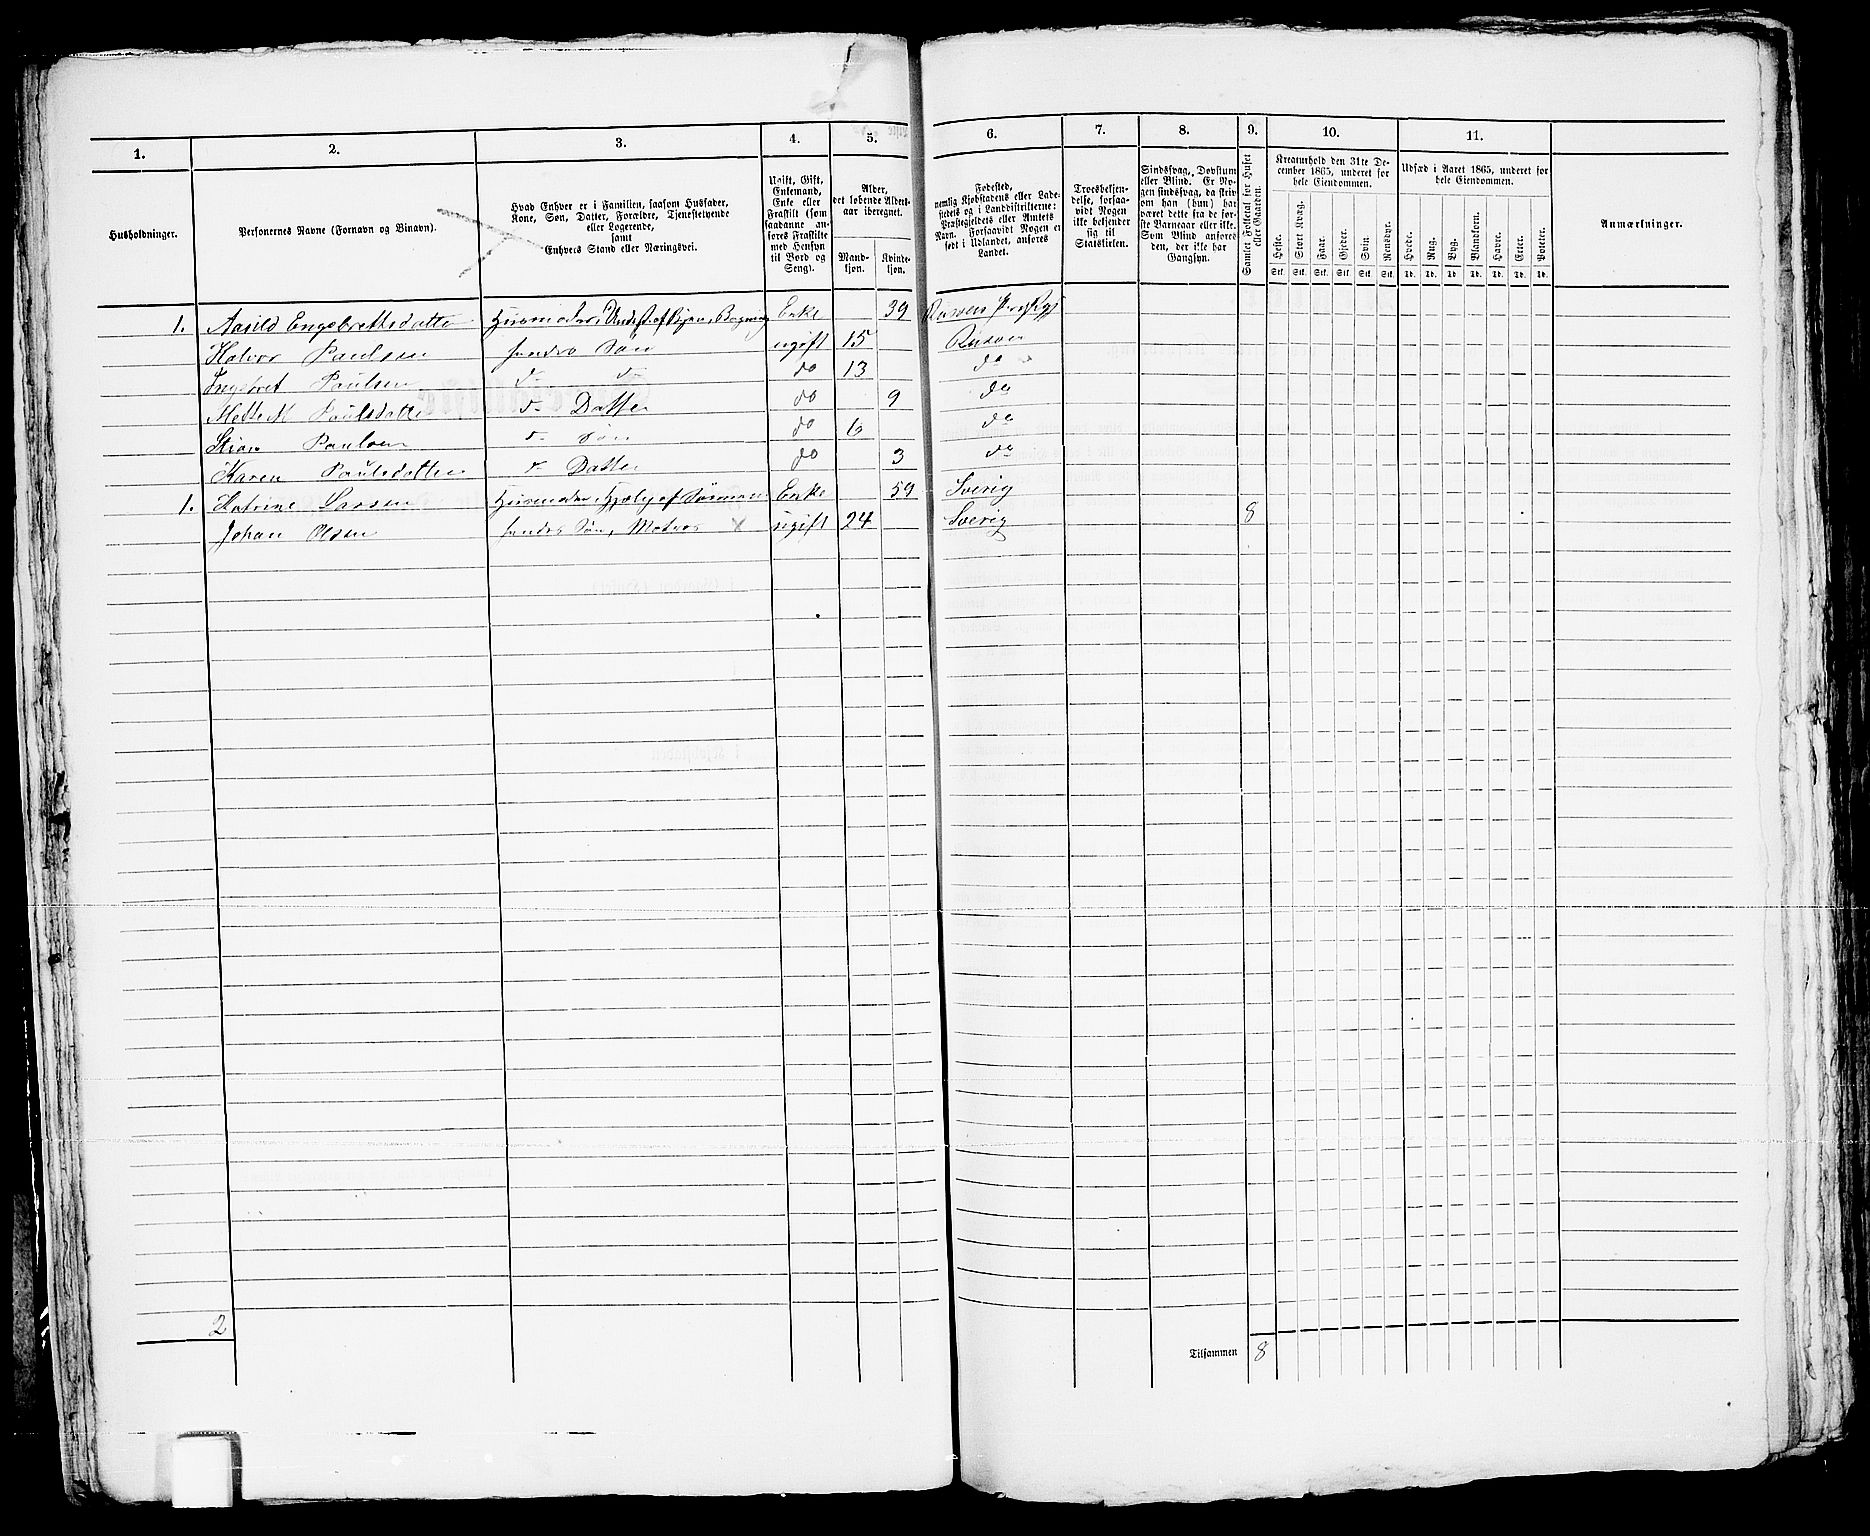 1. 2. 3. 4. 5. 6. 7. 8. 9. 10. 11.
Husholdninger.
Personernes Navne (Fornavn og Binavn).
Hvad Enhver er i Familien, saasom Husfader,
Kone, Søn, Datter, Forældre, Tjenestetyende
eller Logerende,
samt
Enhvers Stand eller Næringsvei.
Ugift, Gift,
Enkemand,
Enke eller
Fraskilt (som
saadanne an-
føres Fraskilte
med Hensyn
til Bord og
Seng).
Alder,
det løbende Alders-
aar iberegnet.
Mand-
kjøn.
Kvinde-
kjøn.
Fødested,
nemlig Kjøbstadens eller Lade-
stedets og i Landdistrikterne:
Præstegjeldets eller Amtets
Navn. Forsaavidt Nogen er
født i Udlandet, anføres
Landet.
Troesbekjen-
delse, forsaa-
vidt Nogen
ikke bekjender
sig til
Statskirken.
Sindssvag, Døvstum
eller Blind. Er No-
gen sindssvag, da skriv
om han (hun) har
været dette fra de før-
ste Barneaar eller ikke.
Som Blind anføres
den, der ikke har
Gangsyn.
Samlet Folketal for Huset
eller Gaarden.
Kreaturhold den 31te De-
cember 1865, underet for
hele Eiendommen.
Heste. Stort Kvæg. Faar. Gjeder. Svin Rensdyr.
Stk. Stk. Stk. Stk. Stk. Stk.
Udsæd i Aaret 1865, underet for
hele Eiendommen.
Hvede. Rug. Byg. Blandkorn. Havre. Erter. Poteter.
Td. Td. Td. Td. Td. Td. Td.
Anmærkninger.
1. Aasild Engebrettsdatte Husmoder, Enke 39
Halvor Paulsen hendes Søn ugift 15 Risøer
Ingebret Paulsen d- d- do 13 do
Paulsdatte d- Datter do 9 do
Paulsen d- Søn do 6 do
Karen Paulsdatter d- Datter do 3 do
1. Katrine Larsen Husmoder, Enke 59 Sverig
Johan Olsen hendes Søn, Matros X ugift 24 Sverig 8
2
Tilsammen 8